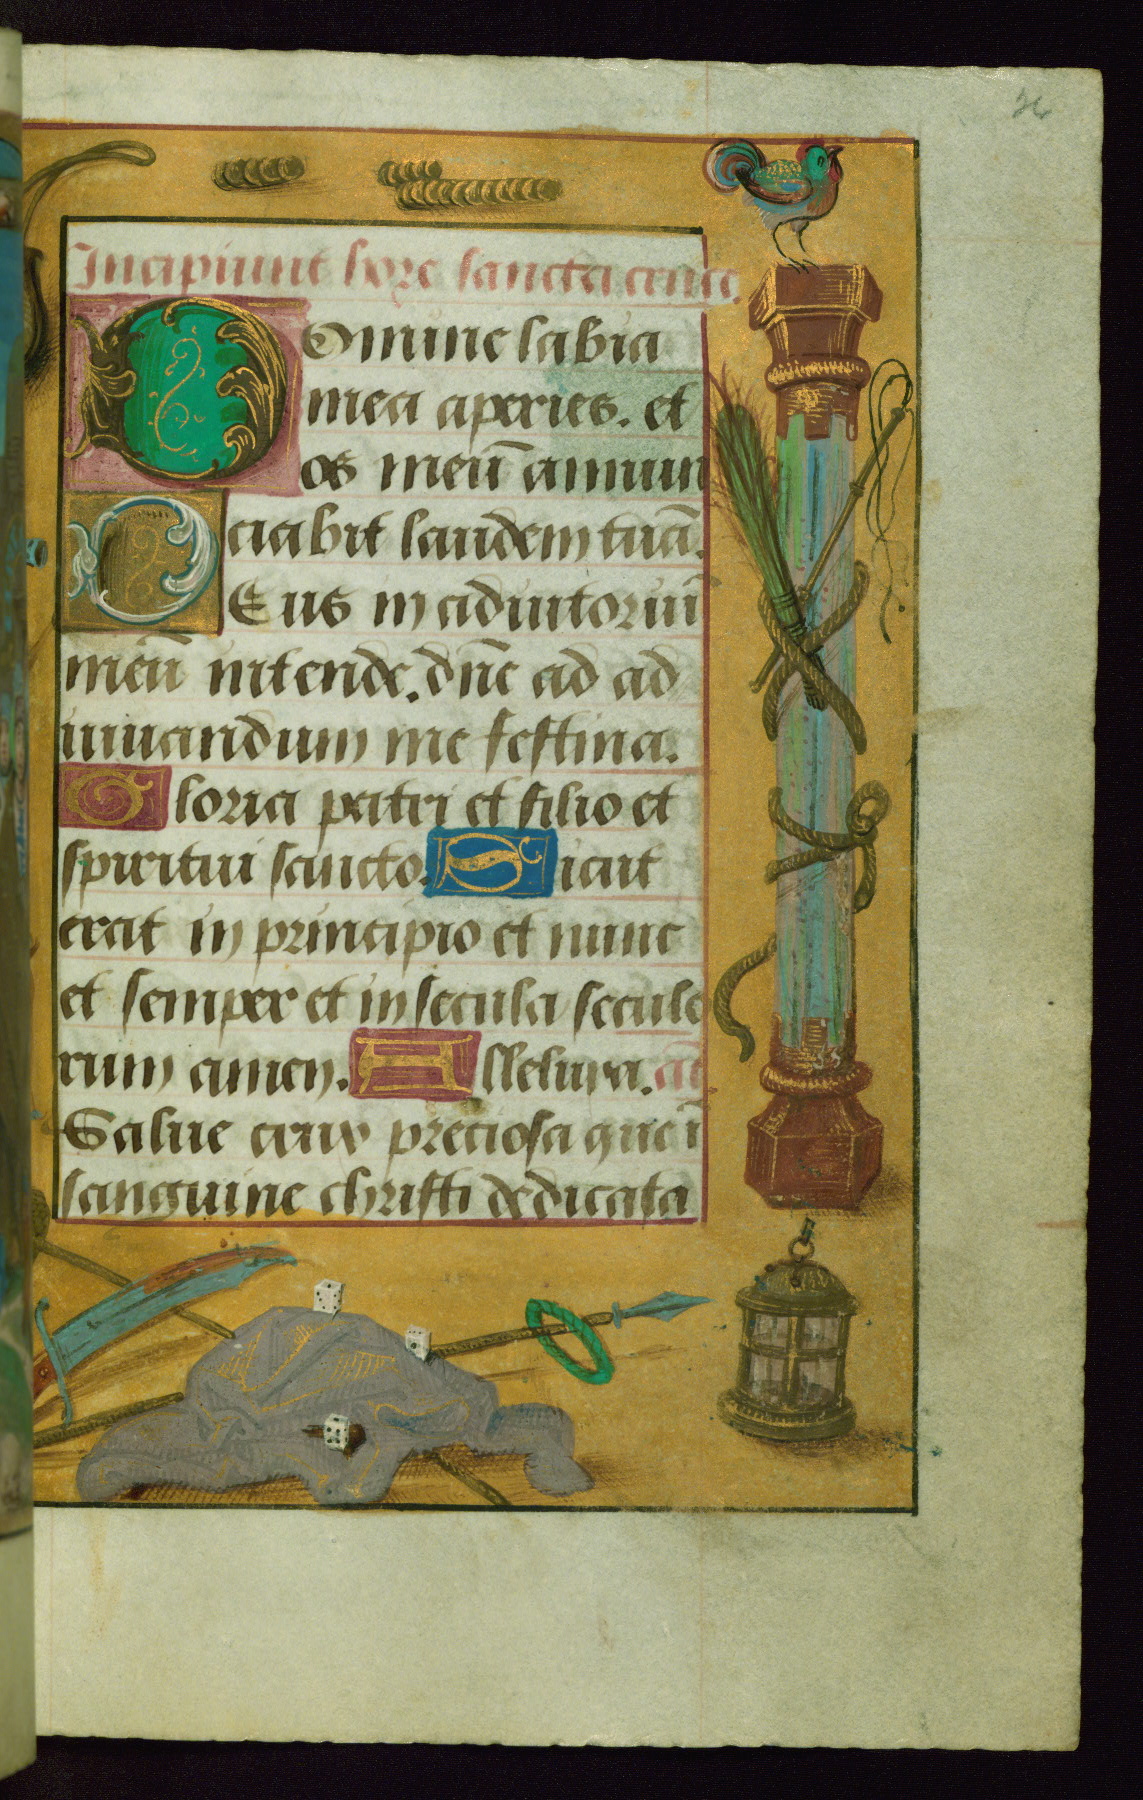 26
Incipiunt hore sancta cruce
Domine labia
mea aperies. et
os meū annun
ciabit laudem tuā.
Deus in adiutoriū
meū intende. dn̄e ad ad
iuuandum me festina.
Gloria patri et filio et
spiritui sancto. Sicut
erat in principio et nunc
et semper et in secula seculo
rum amen. Alleluya. an̄
Salue crux preciosa que ī
sanguine christi dedicata